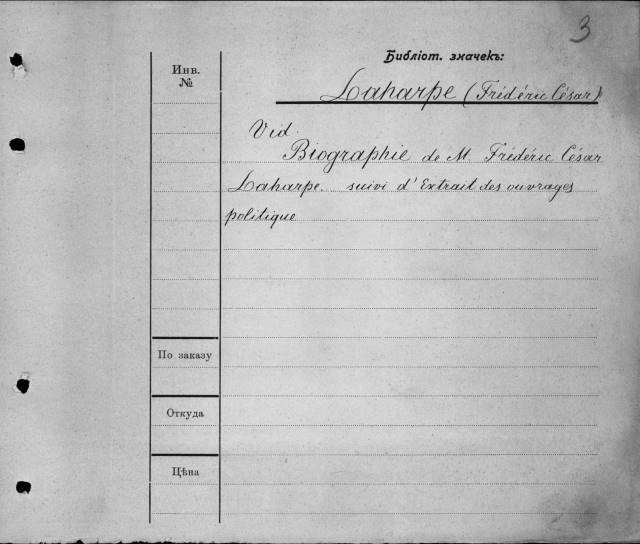 3
Библіот. значекъ:
Инв.
№
Laharpe (Frédéric César)
Vid.
Biographie de M. Frédéric César
Laharpe. suivi d'Extrait des ouvrages
politique
По заказу
Откуда
Цѣна